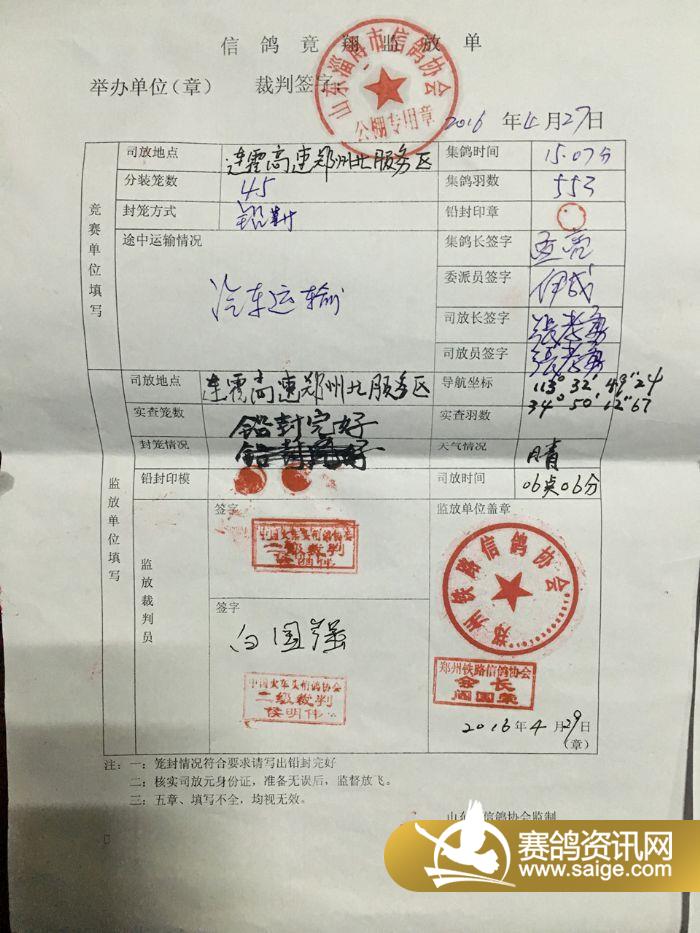 信鸽竞翔监放单
举办单位(章) 裁判签字:
山东淄博市信鸽协会
公棚专用章
2016 年 4 月 27 日
竞赛单位填写
司放地点 连霍高速郑州北服务区 集鸽时间 15.07分
分装笼数 45 集鸽羽数 553
封笼方式 铅封 铅封印章
途中运输情况 集鸽长签字
汽车运输 委派员签字
司放长签字
司放员签字
监放单位填写
司放地点 连霍高速郑州北服务区 导航坐标 113° 32' 49"24
34° 50' 12"67
实查笼数 铅封完好 实查羽数
封笼情况 天气情况 晴
铅封印模 司放时间 06点06分
监放裁判员
签字 监放单位盖章
二级裁判
郑州铁路信鸽协会
签字
白国强
郑州铁路信鸽协会
会长
二级裁判
侯明伟
2016 年 4 月 29 日
(章)
注: 一: 笼封情况符合要求请写出铅封完好
二: 核实司放元身份证，准备无误后，监督放飞。
三: 五章、填写不全，均视无效。
信鸽协会监制
赛鸽资讯网
www.saige.com